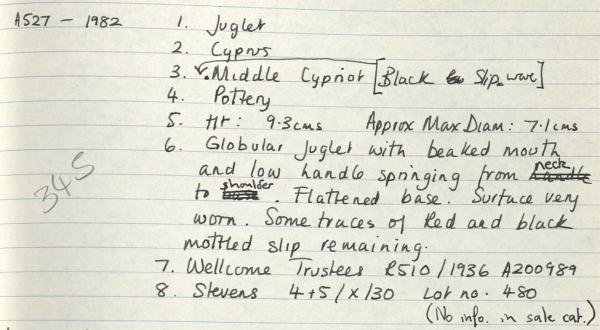 A527 - 1982
1. Juglet
2. Cyprus
3. Middle Cypriot [Black Slip ware]
4. Pottery
5. Ht: 9.3cms Approx Max Diam: 7.1cms
6. Globular Juglet with beaked mouth
and low handle springing from neck
to shoulder. Flattened base. Surface very
worn. Some traces of Red and black
mottled slip remaining.
345
7. Wellcome Trustees R510/1936 A200989
8. Stevens 4+5/X/30 Lot no. 480
(No info. in sale cat.)